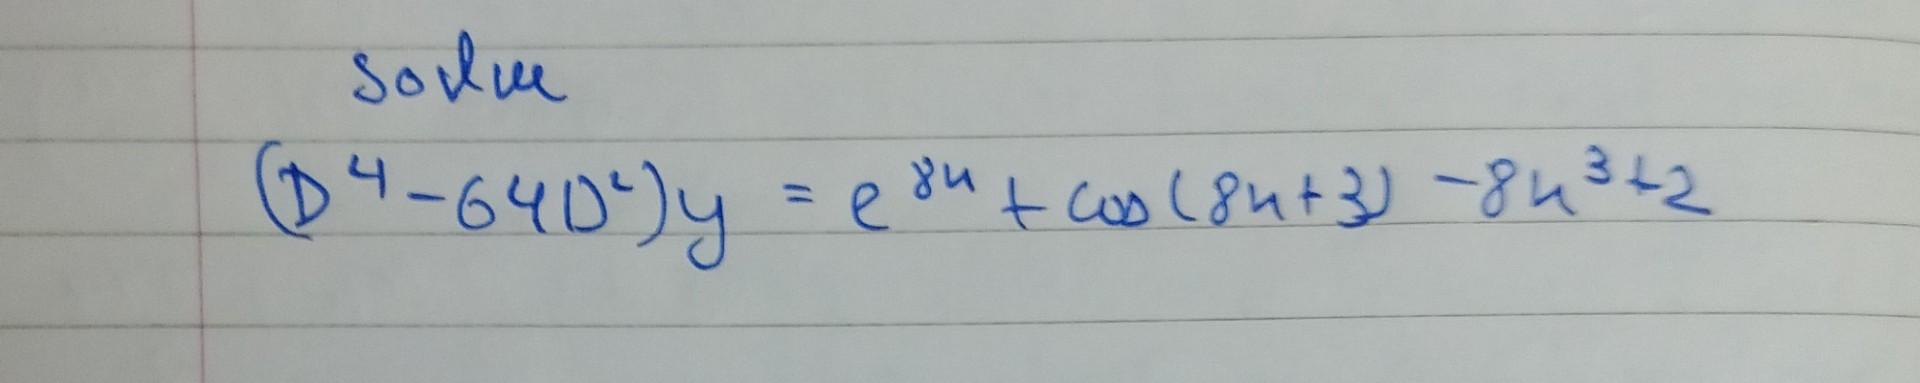 Solve
(D⁴-64D²)y = e⁸ˣ + cos(8x+3) -8x³+2